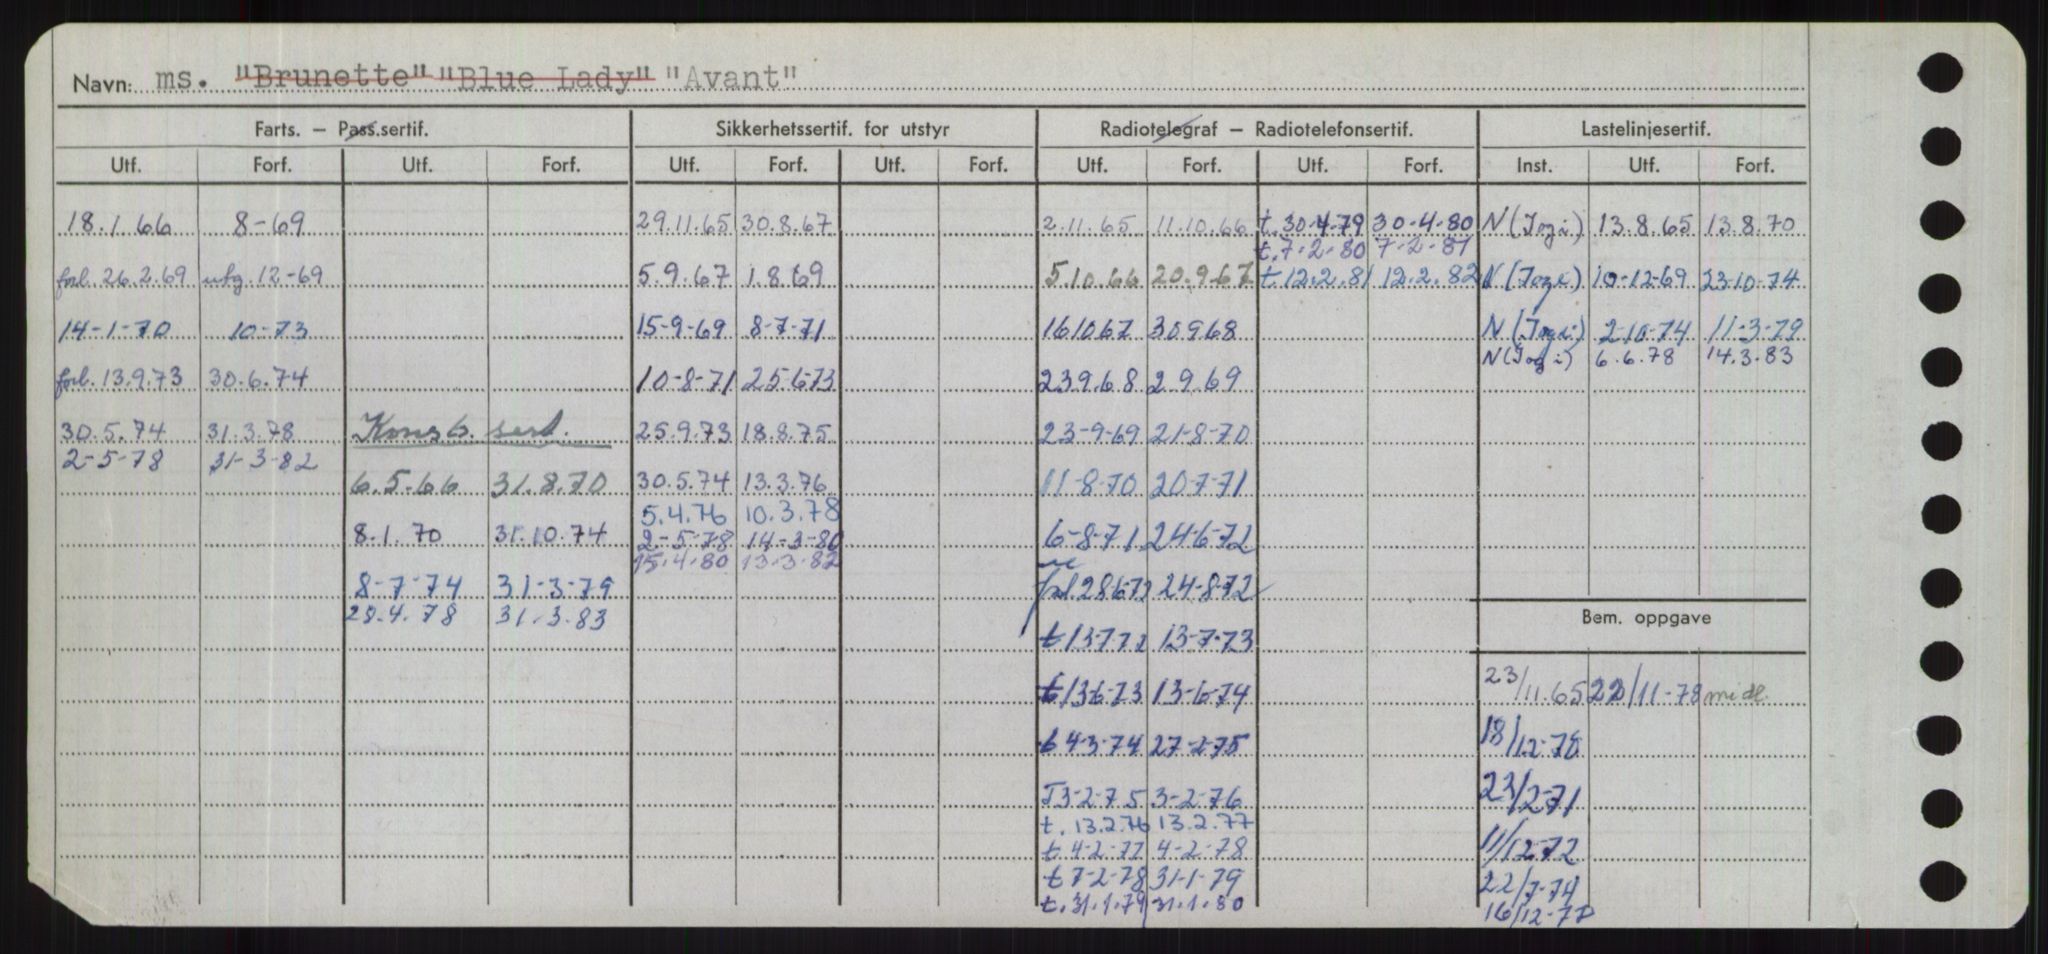 Navn: ms. "Brunette" "Blue Lady" "Avant"
Farts. – Pass.sertif. Sikkerhetssertif. for utstyr Radiotelegraf – Radiotelefonsertif. Lastelinjesertif.
Utf. Forf. Utf. Forf. Utf. Forf. Utf. Forf. Utf. Forf. Utf. Forf. Inst. Utf. Forf.
18.1.66 8-69 29.11.65 30.8.67 2.11.65 11.10.66 t.30-4-79 30-4-80 N (Iogi) 13.8.65 13.8.70
t.7-2-80 7-2-81
forl. 26.2.69 utg. 12-69 5.9.67 1.8.69 5.10.66 20.9.67 t.12.2.81 12.2.82 N (Iogi) 10-12-69 23-10-74
14-1-70 10-73 15-9-69 8-7-71 161067 30968 N (Iogi) 2-10-74 11-3-79
N (Iogi) 6.6.78 14.3.83
forl. 13.9.73 30.6.74 10-8-71 25.6.73 239.68 2969
30.5.74 31.3.78 Konstr. sert. 25.9.73 18.8.75 23-9-69 21-8-70
2-5-78 31-3-82
6.5.66 31.8.70 30.5.74 13.3.76 11-8-70 20-7-71
5.4.76 10.3.78
8.1.70 31.10.74 2-5-78 14-3-80 6-8-71 24-6-72
15.4.80 13.3.82
8-7-74 31-3-79 forl 28672 24-8-72
28.4.78 31.3.83 Bem. oppgave
t 13-7-72 13-7-73
t 13-6-73 13-6-74 23/11.65 22/11-78 midl.
t 4-3-74 27-2-75 18/12-78
T3-2-75 3-2-76 23/2-71
t. 13.2.76 13.2.77
t 4-2-77 4-2-78 11/12-72
t 7-2-78 31-1-79 22/7-74
t. 31.1.79 31.1.80 16/12-77